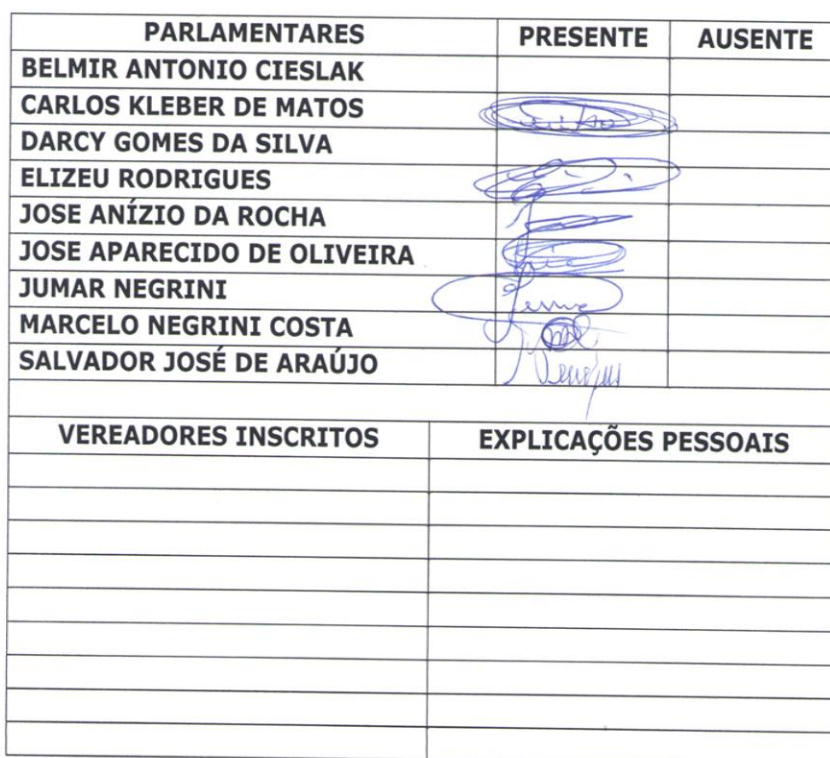 PARLAMENTARES PRESENTE AUSENTE
BELMIR ANTONIO CIESLAK
CARLOS KLEBER DE MATOS
DARCY GOMES DA SILVA
ELIZEU RODRIGUES
JOSE ANÍZIO DA ROCHA
JOSE APARECIDO DE OLIVEIRA
JUMAR NEGRINI
MARCELO NEGRINI COSTA
SALVADOR JOSÉ DE ARAÚJO
VEREADORES INSCRITOS EXPLICAÇÕES PESSOAIS